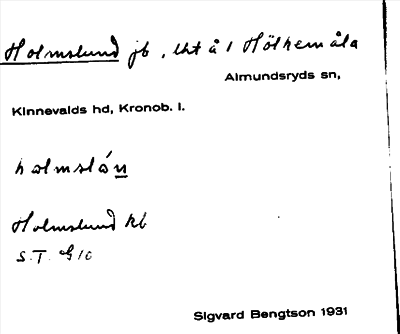 Holmslund jb, lht å 1 Hölkemåla
Almundsryds sn,
Kinnevalds hd, Kronob. l.
holmslán
Holmslund kb
S.T. G10
Sigvard Bengtson 1931